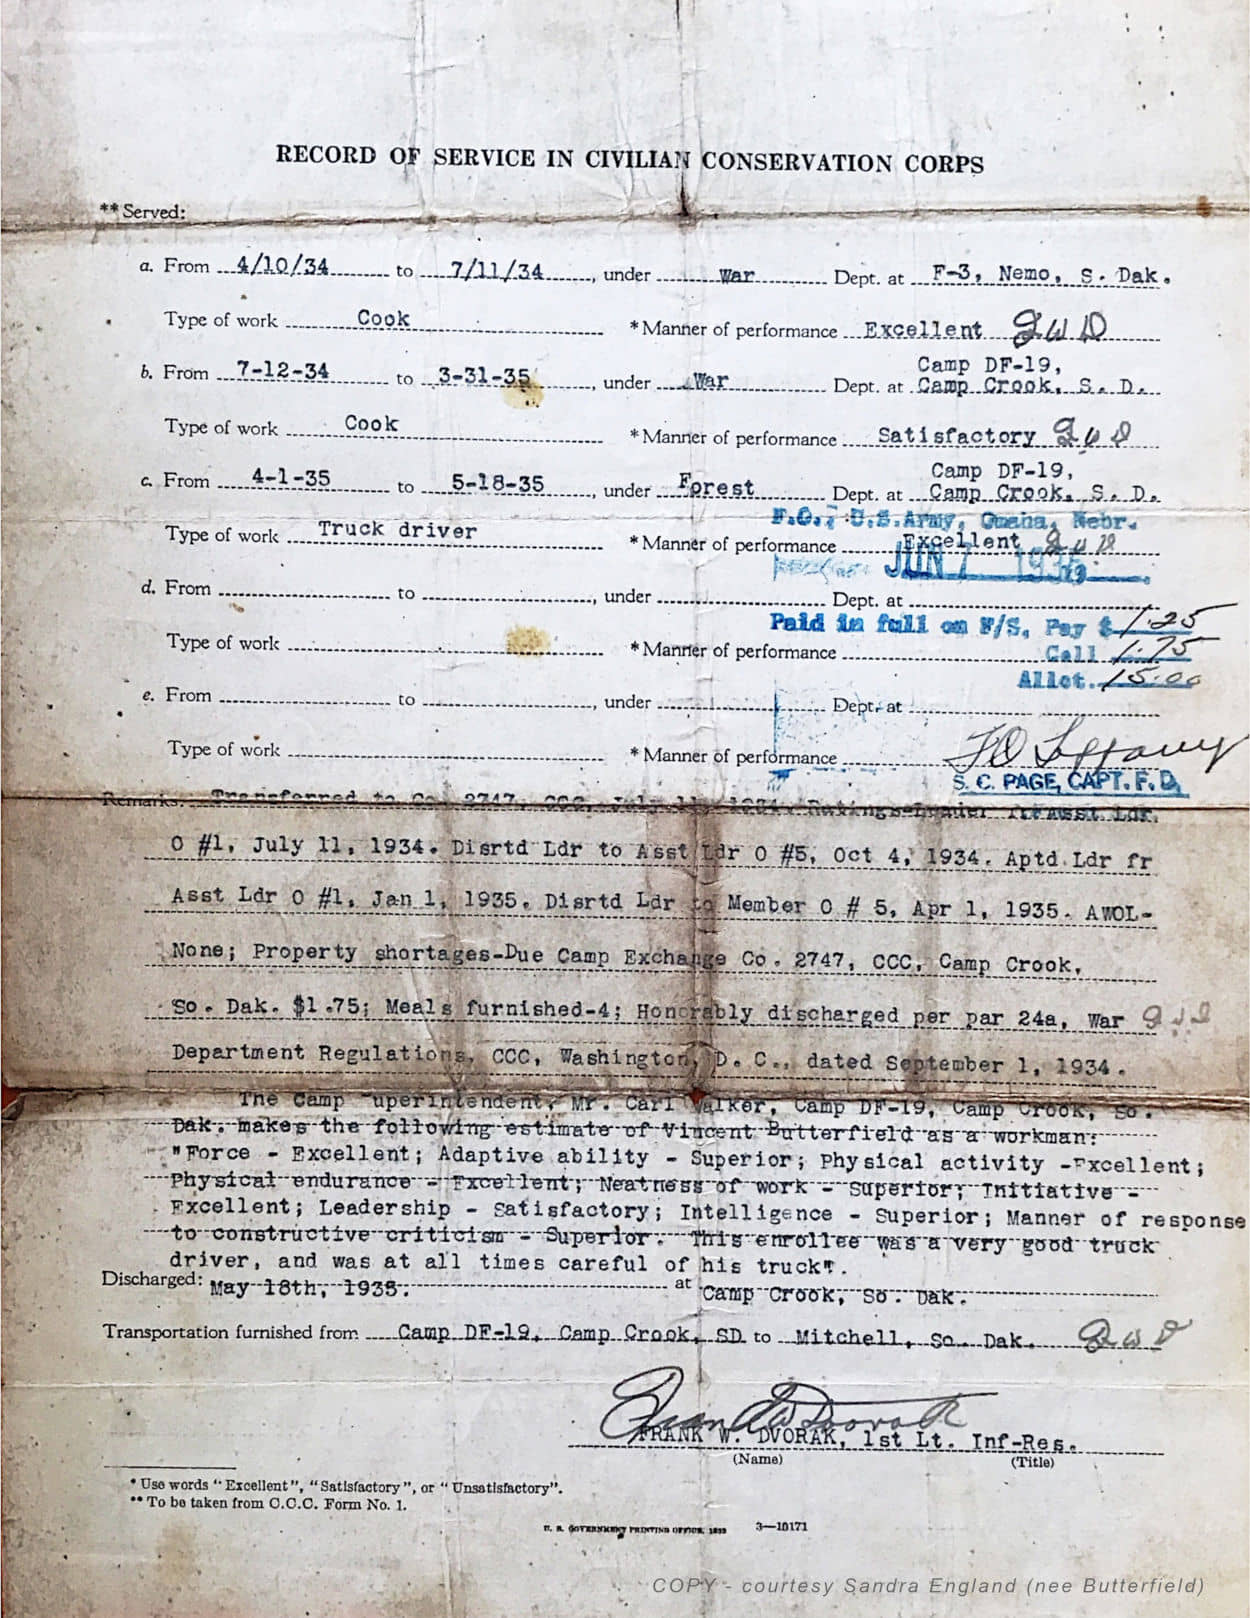 RECORD OF SERVICE IN CIVILIAN CONSERVATION CORPS
** Served:
a. From 4/10/34 to 7/11/34, under War Dept. at F-3, Nemo, S. Dak.
Type of work Cook *Manner of performance Excellent FWD
Camp DF-19,
b. From 7-12-34 to 3-31-35, under War Dept. at Camp Crook, S. D.
Type of work Cook *Manner of performance Satisfactory FWD
Camp DF-19,
c. From 4-1-35 to 5-18-35, under Forest Dept. at Camp Crook, S. D.
F.O., U.S. Army, Omaha, Nebr.
Type of work Truck driver *Manner of performance Excellent FWD
JUN 7 1935
d. From to , under Dept. at
Paid in full on F/S, Pay $ 1.25
Type of work *Manner of performance
Coll 1.75
Allot. 15.00
e. From to , under Dept. at
Type of work *Manner of performance
S. C. PAGE, CAPT. F. D.
Remarks: Transferred to Co. 2747, CCC, July 11, 1934. Ratings-Leader fr Asst Ldr,
O #1, July 11, 1934. Disrtd Ldr to Asst Ldr O #5, Oct 4, 1934. Aptd Ldr fr
Asst Ldr O #1, Jan 1, 1935. Disrtd Ldr to Member O # 5, Apr 1, 1935. AWOL-
None; Property shortages-Due Camp Exchange Co. 2747, CCC, Camp Crook,
So. Dak. $1.75; Meals furnished-4; Honorably discharged per par 24a, War FWD
Department Regulations, CCC, Washington, D. C., dated September 1, 1934.
The Camp uperintendent, Mr. Carl Walker, Camp DF-19, Camp Crook, So.
Dak. makes the following estimate of Vincent Butterfield as a workman:
"Force - Excellent; Adaptive ability - Superior; Physical activity -Excellent;
Physical endurance - Excellent; Neatness of work - Superior; Initiative -
Excellent; Leadership - Satisfactory; Intelligence - Superior; Manner of response
to constructive criticism - Superior. This enrollee was a very good truck
driver, and was at all times careful of his truck".
Discharged: May 18th, 1935. at Camp Crook, So. Dak.
Transportation furnished from Camp DF-19, Camp Crook, SD to Mitchell, So. Dak. FWD
Frank W Dvorak
FRANK W. DVORAK, 1st Lt. Inf-Res.
(Name) (Title)
* Use words "Excellent", "Satisfactory", or "Unsatisfactory".
** To be taken from C.C.C. Form No. 1.
U. S. GOVERNMENT PRINTING OFFICE, 1933 3—10171
COPY - courtesy Sandra England (nee Butterfield)